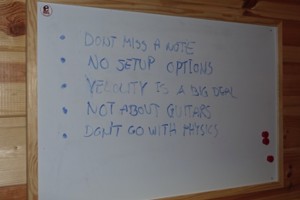 • DON'T MISS A NOTE
• NO SETUP OPTIONS
• VELOCITY IS A BIG DEAL
• NOT ABOUT GUITARS
• DON'T GO WITH PHYSICS